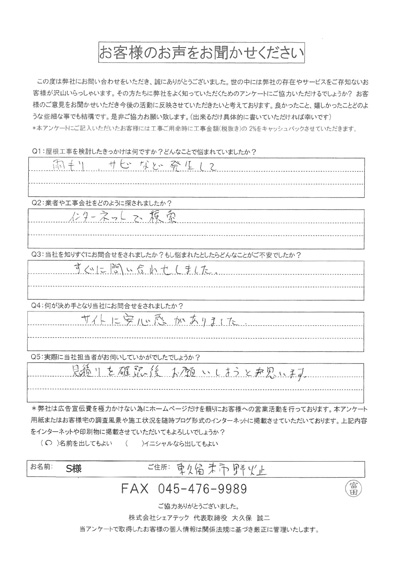 お客様のお声をお聞かせください
この度は弊社にお問い合わせをいただき、誠にありがとうございました。世の中には弊社の存在やサービスをご存知ないお
客様が沢山いらっしゃいます。その方たちに弊社をよく知っていただくためのアンケートにご協力いただけるでしょうか? お客
様のご意見をお聞かせいただき今後の活動に反映させていただきたいと考えております。良かったこと、嬉しかったことどのよ
うな些細な事でも結構です。是非ご協力お願い致します。(出来るだけ具体的に書いていただければ幸いです)
*本アンケートにご記入いただいたお客様には工事ご用命時に工事金額(税抜き)の2%をキャッシュバックさせていただきます。
Q1:屋根工事を検討したきっかけは何ですか?どんなことで悩まれていましたか?
雨もり、サビなど発生して
Q2:業者や工事会社をどのように探されましたか?
インターネットで検索
Q3:当社を知りすぐにお問合せをされましたか?もし悩まれたとしたらどんなことがご不安でしたか?
すぐに問い合わせしました。
Q4:何が決め手となり当社にお問合せをされましたか?
サイトに安心感がありました。
Q5:実際に当社担当者がお伺いしていかがでしたでしょうか?
見積りを確認後お願いしようと思います。
*弊社は広告宣伝費を極力かけない為にホームページだけを頼りにお客様への営業活動を行っております。本アンケート
用紙またはお客様宅の調査風景や施工状況を随時ブログ形式のインターネットに掲載させていただいております。上記内容
をインターネットや印刷物に掲載させていただいてもよろしいでしょうか?
(○)名前を出してもよい ( )イニシャルなら出してもよい
お名前: S様 ご住所: 東久留米市野火止
FAX 045-476-9989
ご協力ありがとうございました。
株式会社シェアテック 代表取締役 大久保 誠二
当アンケートで取得したお客様の個人情報は関係法規に基づき厳正に管理いたします。